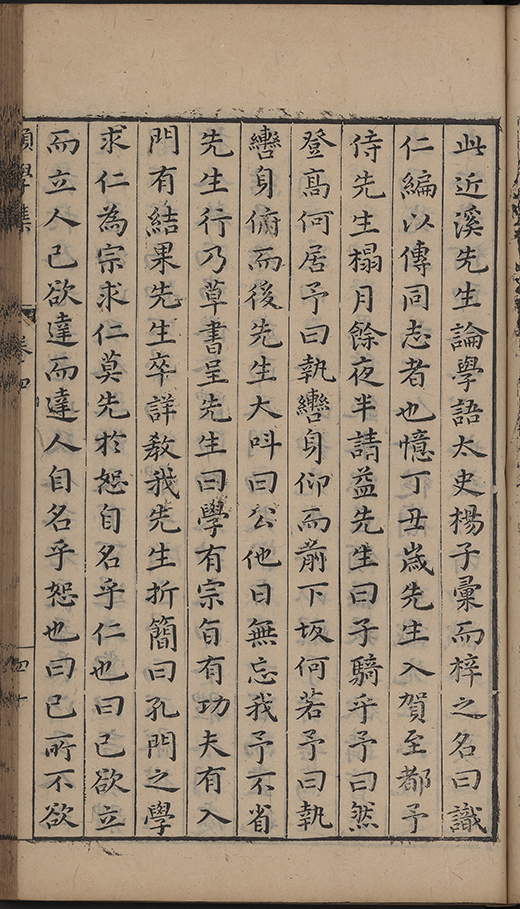 此近溪先生論學語太史楊子彙而梓之名曰識
仁編以傳同志者也憶丁丑歲先生入賀至都予
侍先生榻月餘夜半請益先生曰子騎乎予曰然
登髙何居予曰執轡身仰而前下坂何若予曰執
轡身俯而後先生大呌曰公他日無忘我予不省
先生行乃草書呈先生曰學有宗旨有功夫有入
門有結果先生卒詳教我先生折簡曰孔門之學
求仁為宗求仁莫先於恕自名乎仁也曰己欲立
而立人己欲達而達人自名乎恕也曰己所不欲
學集
卷四
四十